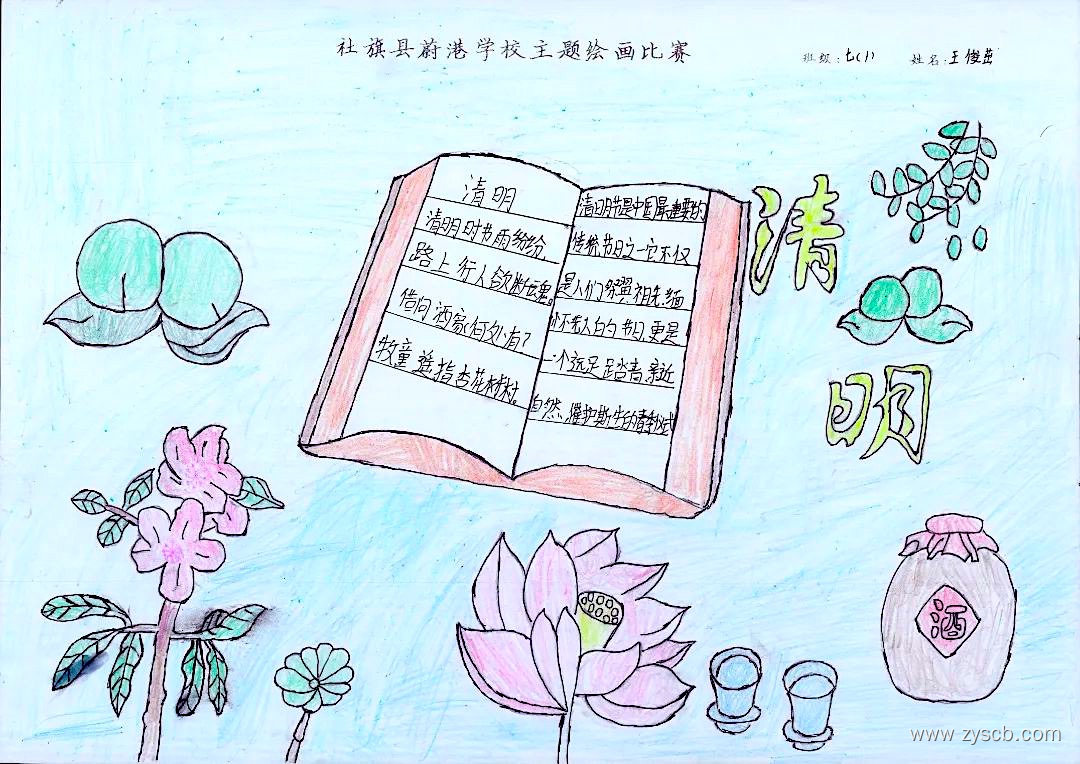 社旗县蔚港学校主题绘画比赛
班级:七(1) 姓名:王俊茁
清明
清明时节雨纷纷
路上行人欲断魂。
借问酒家何处有?
牧童遥指杏花村。
清明节是中国最重要的
传统节日之一它不仅
是人们祭奠祖先、缅
怀先人的节日,更是
一个远足踏青、亲近
自然、
清
明
酒
www.zyscb.com